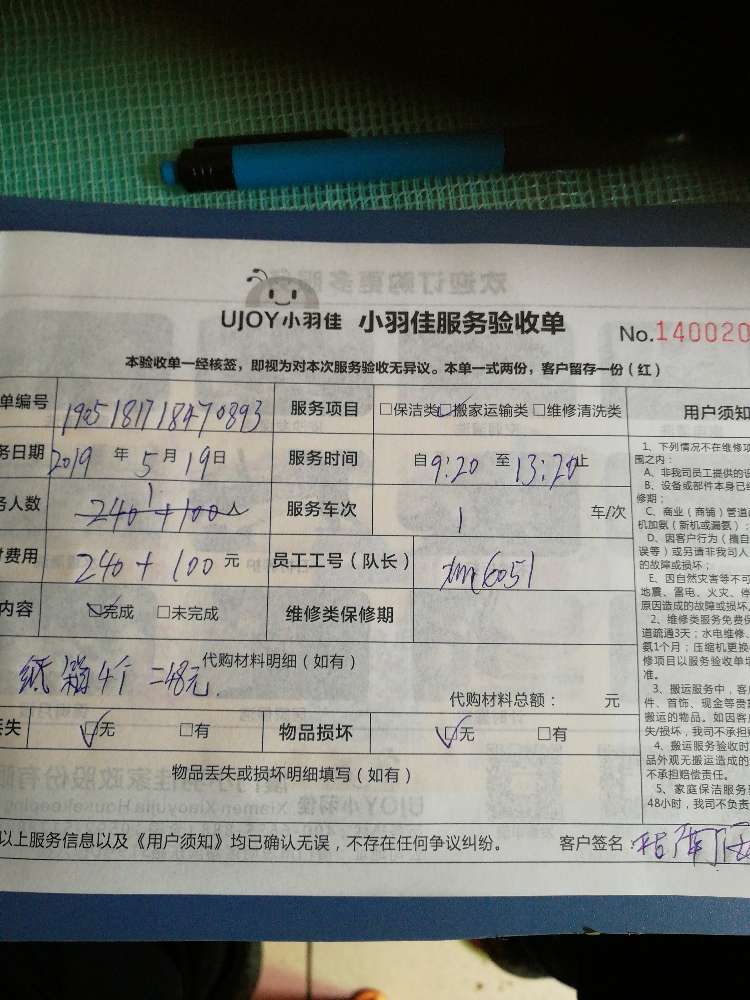 UJOY小羽佳 小羽佳服务验收单 No.140020
本验收单一经核签，即视为对本次服务验收无异议。本单一式两份，客户留存一份（红）
单编号 1905181718470893 服务项目 □保洁类 ☑搬家运输类 □维修清洗类 用户须知
务日期 2019 年 5 月 19 日 服务时间 自 9:20 至 13:20 止
务人数 1 240+100 人 服务车次 1 车/次
费用 240+100 元 员工工号（队长） 6051
内容 ☑完成 □未完成 维修类保修期
代购材料明细（如有）
纸箱4个=48元
代购材料总额： 元
丢失 ☑无 □有 物品损坏 ☑无 □有
物品丢失或损坏明细填写（如有）
以上服务信息以及《用户须知》均已确认无误，不存在任何争议纠纷。 客户签名：
1、下列情况不在维修项
围之内：
A、非我司员工提供的
B、设备或部件本身已
修期；
C、商业（商铺）管道
机加氨（新机或漏氨）；
D、因客户行为（擅自
误等）或另请非我司人
的故障或损坏；
E、因自然灾害等不可
地震、雷电、火灾、停
原因造成的故障或损坏
2、维修类服务免费保
道疏通3天；水电维修
氨1个月；压缩机更换
修项目以服务验收单
准。
3、搬运服务中，客
件、首饰、现金等贵
搬运的物品。如因客
失/损坏，我司不承担
4、搬运服务验收时
品外观无搬运造成的
不承担赔偿责任。
5、家庭保洁服务
48小时，我司不负责